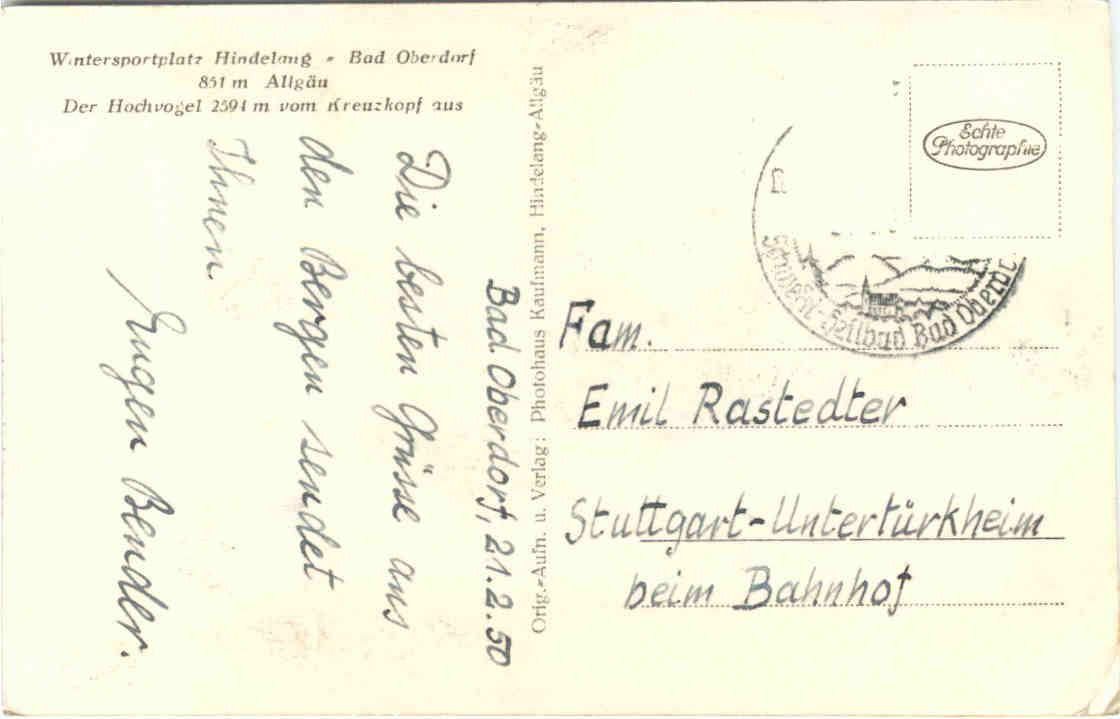 Wintersportplatz Hindelang - Bad Oberdorf
851 m Allgäu
Der Hochvogel 2594 m vom Kreuzkopf aus
Bad Oberdorf, 21.2.50
Die besten Grüsse aus
den Bergen sendet
Ihnen
Eugen Bender.
Orig.-Aufn. u. Verlag: Photohaus Kaufmann, Hindelang-Allgäu
Echte
Photographie
Schwefel-Heilbad Bad Oberd
Fam.
Emil Rastedter
Stuttgart-Untertürkheim
beim Bahnhof